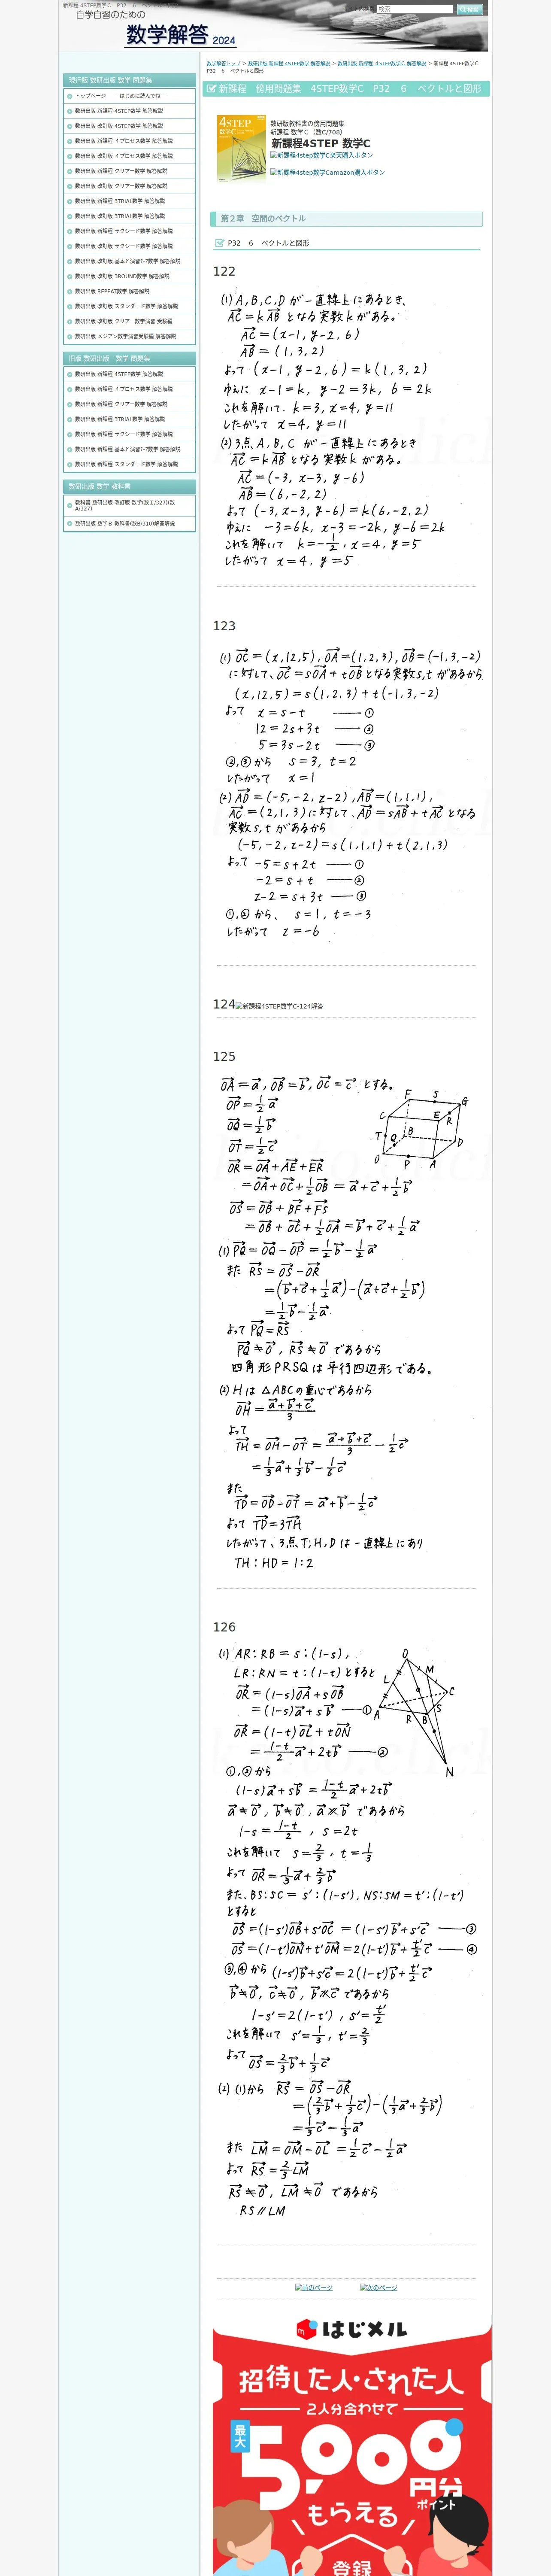 新課程 4STEP数学C　P32　6　ベクトルと図形
自学自習のための
数学解答 2024
検索
検索
数学解答トップ > 数研出版 新課程 4STEP数学 解答解説 > 数研出版 新課程 4STEP数学C 解答解説 > 新課程 4STEP数学C
P32　6　ベクトルと図形
現行版 数研出版 数学 問題集
トップページ　 － はじめに読んでね －
数研出版 新課程 4STEP数学 解答解説
数研出版 改訂版 4STEP数学 解答解説
数研出版 新課程 4プロセス数学 解答解説
数研出版 改訂版 4プロセス数学 解答解説
数研出版 新課程 クリアー数学 解答解説
数研出版 改訂版 クリアー数学 解答解説
数研出版 新課程 3TRIAL数学 解答解説
数研出版 改訂版 3TRIAL数学 解答解説
数研出版 新課程 サクシード数学 解答解説
数研出版 改訂版 サクシード数学 解答解説
数研出版 改訂版 基本と演習ﾃｰﾏ数学 解答解説
数研出版 改訂版 3ROUND数学 解答解説
数研出版 REPEAT数学 解答解説
数研出版 改訂版 スタンダード数学 解答解説
数研出版 改訂版 クリアー数学演習 受験編
数研出版 メジアン数学演習受験編 解答解説
旧版 数研出版　数学 問題集
数研出版 新課程 4STEP数学 解答解説
数研出版 新課程 4プロセス数学 解答解説
数研出版 新課程 クリアー数学 解答解説
数研出版 新課程 3TRIAL数学 解答解説
数研出版 新課程 サクシード数学 解答解説
数研出版 新課程 基本と演習ﾃｰﾏ数学 解答解説
数研出版 新課程 スタンダード数学 解答解説
数研出版 数学 教科書
教科書 数研出版 改訂版 数学(数Ⅰ/327)(数
A/327)
数研出版 数学Ｂ 教科書(数B/310)解答解説
新課程　傍用問題集　4STEP数学C　P32　6　ベクトルと図形
4STEP
数学C
数研版教科書の傍用問題集
新課程 数学Ｃ（数C/708）
新課程4STEP 数学C
新課程4step数学C楽天購入ボタン
新課程4step数学Camazon購入ボタン
第２章　空間のベクトル
P32　6　ベクトルと図形
122
(1) A, B, C, D が一直線上にあるとき、
AC = kAB となる実数kがある。
AC = (x-1, y-2, 6)
AB = (1, 3, 2)
よって (x-1, y-2, 6) = k(1, 3, 2)
ゆえに x-1=k, y-2=3k, 6=2k
これを解いて. k=3, x=4, y=11
したがって x=4, y=11
(2) 3点 A, B, C が一直線上にあるとき
AC = kAB となる実数kがある。
AC = (-3, x-3, y-6)
AB = (6, -2, 2)
よって (-3, x-3, y-6) = k(6, -2, 2)
ゆえに -3=6k, x-3=-2k, y-6=2k
これを解いて k=-1/2, x=4, y=5
したがって x=4, y=5
123
(1) OC = (x, 12, 5), OA = (1, 2, 3), OB = (-1, 3, -2)
に対して、OC = sOA + tOB となる実数s,t があるから
(x, 12, 5) = s(1, 2, 3) + t(-1, 3, -2)
よって x = s-t ―― ①
12 = 2s+3t ―― ②
5 = 3s-2t ―― ③
②,③から s=3, t=2
したがって x=1
(2) AD = (-5, -2, z-2), AB = (1, 1, 1),
AC = (2, 1, 3)に対して、AD = sAB + tAC となる
実数s,t があるから
(-5, -2, z-2) = s(1, 1, 1) + t(2, 1, 3)
よって -5 = s+2t ―― ①
-2 = s+t ―― ②
z-2 = s+3t ―― ③
①,②から、 s=1, t=-3
したがって z=-6
124新課程4STEP数学C-124解答
125
OA = a, OB = b, OC = c とする。
OP = 1/2 a
OQ = 1/2 b
OT = 1/2 c
OR = OA + AE + ER
= OA + OC + 1/2 OB = a + c + 1/2 b
OS = OB + BF + FS
= OB + OC + 1/2 OA = b + c + 1/2 a
F S G C E R T Q B D O P A
(1) PQ = OQ - OP = 1/2 b - 1/2 a
また RS = OS - OR
= (b + c + 1/2 a) - (a + c + 1/2 b)
= 1/2 b - 1/2 a
よって PQ = RS
PQ ≠ 0, RS ≠ 0 であるから
四角形PRSQは平行四辺形である。
(2) Hは △ABCの重心であるから
OH = (a+b+c)/3
よって
TH = OH - OT = (a+b+c)/3 - 1/2 c
= 1/3 a + 1/3 b - 1/6 c
また
TD = OD - OT = a + b - 1/2 c
よって TD = 3TH
したがって、3点T, H, Dは一直線上にあり
TH : HD = 1 : 2
126
(1) AR : RB = s : (1-s),
LR : RN = t : (1-t) とすると
OR = (1-s)OA + sOB
= (1-s)a + sb ―― ①
OR = (1-t)OL + tON
= (1-t)/2 a + 2tb ―― ②
O M L C A R B S N
①,②から
(1-s)a + sb = (1-t)/2 a + 2tb
a ≠ 0, b ≠ 0, a ∦ b であるから
1-s = (1-t)/2 , s = 2t
これを解いて s = 2/3, t = 1/3
よって OR = 1/3 a + 2/3 b
また、BS : SC = s' : (1-s'), NS : SM = t' : (1-t')
とすると
OS = (1-s')OB + s'OC = (1-s')b + s'c ―― ③
OS = (1-t')ON + t'OM = 2(1-t')b + t'/2 c ―― ④
③,④から (1-s')b + s'c = 2(1-t')b + t'/2 c
b ≠ 0, c ≠ 0, b ∦ c であるから
1-s' = 2(1-t') , s' = t'/2
これを解いて s' = 1/3, t' = 2/3
よって OS = 2/3 b + 1/3 c
(2) (1)から RS = OS - OR
= (2/3 b + 1/3 c) - (1/3 a + 2/3 b)
= 1/3 c - 1/3 a
また LM = OM - OL = 1/2 c - 1/2 a
よって RS = 2/3 LM
RS ≠ 0, LM ≠ 0 であるから
RS // LM
前のページ
次のページ
はじメル
招待した人・された人
2人分合わせて
最大
5,000円分
ポイント
もらえる
登録